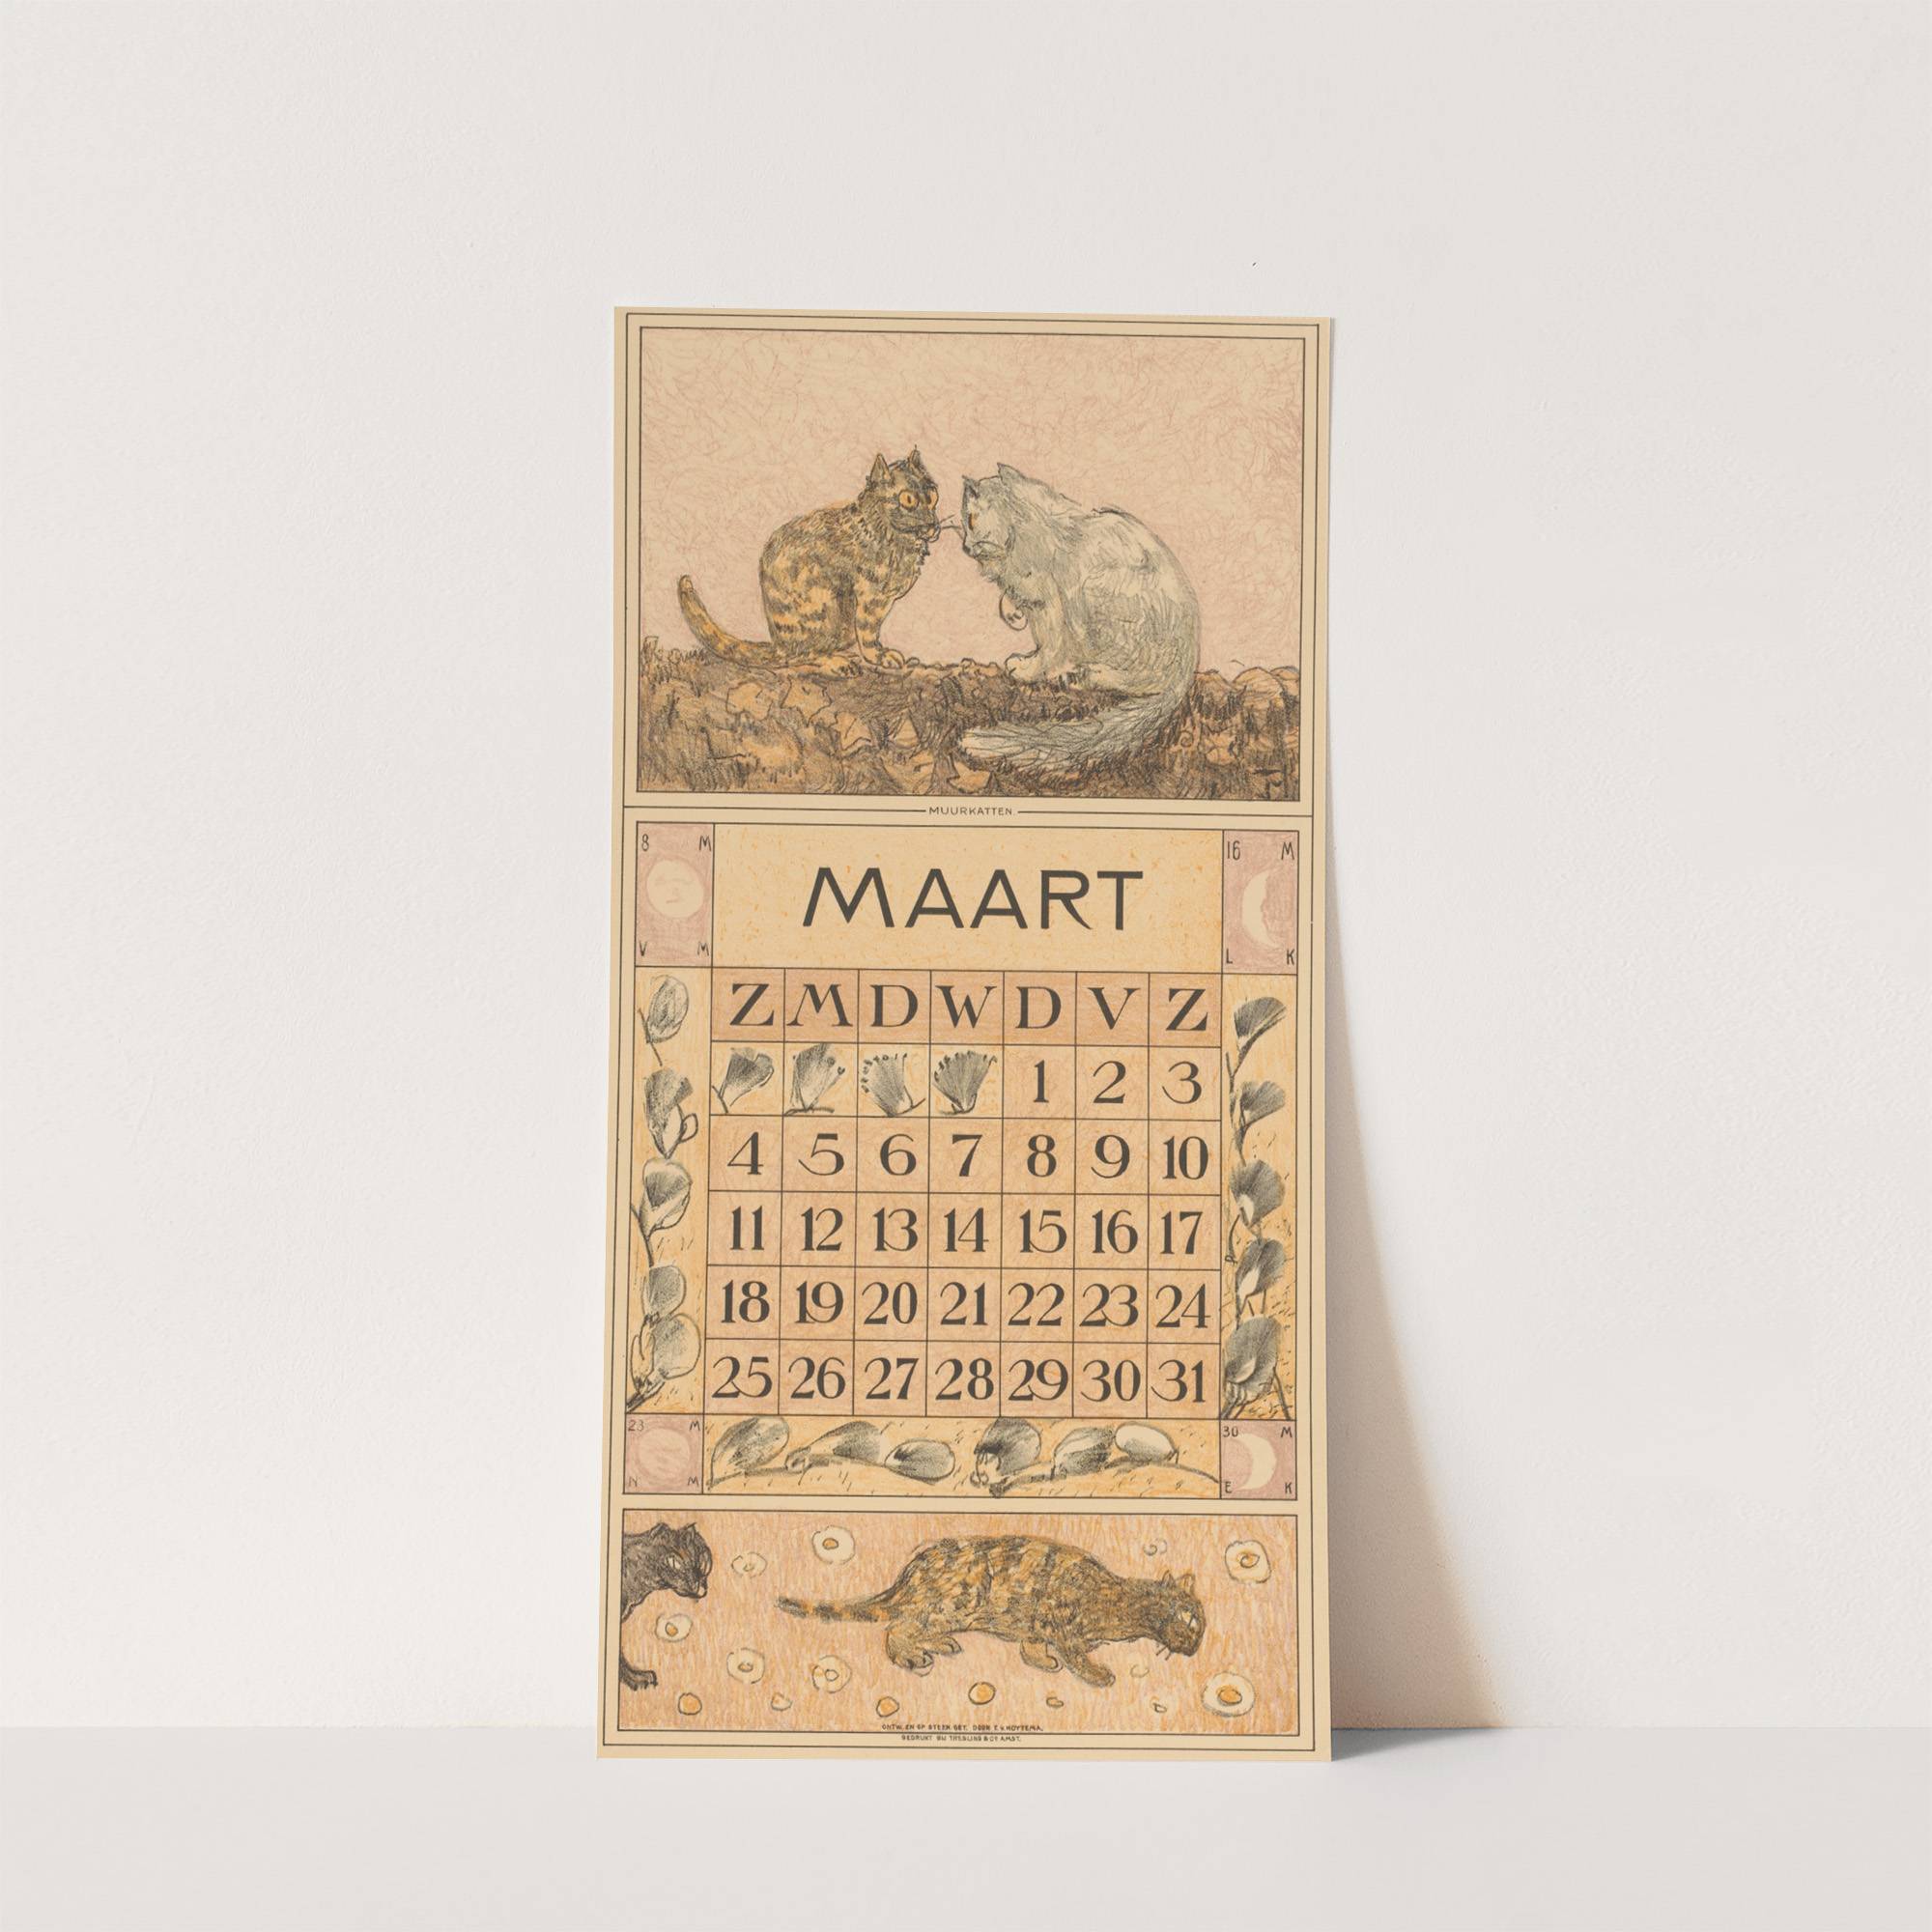 MUURKATTEN
8 M
V M
MAART
16 M
L K
Z M D W D V Z
1 2 3
4 5 6 7 8 9 10
11 12 13 14 15 16 17
18 19 20 21 22 23 24
25 26 27 28 29 30 31
23 M
N M
30 M
E K
ONTW. EN OP STEEN GET. DOOR T. v. HOYTEMA.
GEDRUKT BIJ TRESLING & Co AMST.